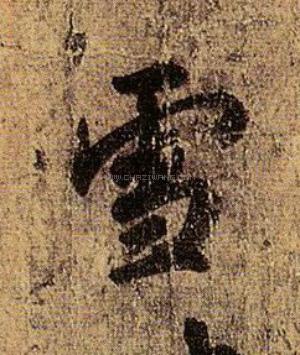 雪
WWW.CHAZIWANG.COM